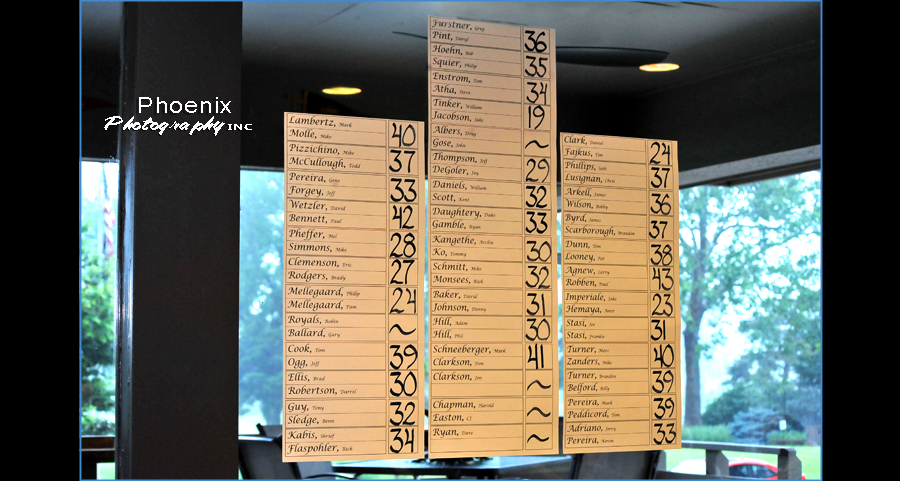 Phoenix
Photography INC
Lambertz, Mark
Molle, Mike 40
Pizzichino, Mike
McCullough, Todd 37
Pereira, Gene
Forgey, Jeff 33
Wetzler, David
Bennett, Paul 42
Pheffer, Mel
Simmons, Mike 28
Clemenson, Eric
Rodgers, Brady 27
Mellegaard, Philip
Mellegaard, Pam 24
Royals, Robin
Ballard, Gary ~
Cook, Tom
Ogg, Jeff 39
Ellis, Brad
Robertson, Darrel 30
Guy, Tony
Sledge, 32
Kabis,
Flaspohler, Rick 34
Furstner, Greg
Pint, Daryl 36
Hoehn, Bob
Squier, Philip 35
Enstrom, Tom
Atha, Steve 34
Tinker, William
Jacobson, Jake 19
Albers, Doug
Gose, John ~
Thompson, Jeff
DeGoler, Jay 29
Daniels, William
Scott, Kent 32
Daughtery, Duke
Gamble, Ryan 33
Kangethe, Archie
Ko, Tommy 30
Schmitt, Mike
Monsees, Rick 32
Baker, David
Johnson, Danny 31
Hill, Adam
Hill, Phil 30
Schneeberger, Mark
Clarkson, Tom 41
Clarkson, Jon
~
Chapman, Harold
Easton, CJ ~
Ryan, Dave
~
Clark, Daniel
Fajkus, Tim 24
Phillips, Seth
Lusignan, Chris 37
Arkell, James
Wilson, Bobby 36
Byrd, James
Scarborough, Brandon 37
Dunn, Tom
Looney, Pat 38
Agnew, Larry
Robben, Paul 43
Imperiale, Jake
Hemaya, Amir 23
Stasi, Joe
Stasi, Franklin 31
Turner, Marc
Zanders, Mike 40
Turner, Brandon
Belford, Billy 39
Pereira, Mark
Peddicord, Tom 39
Adriano, Jerry
Pereira, Kevin 33